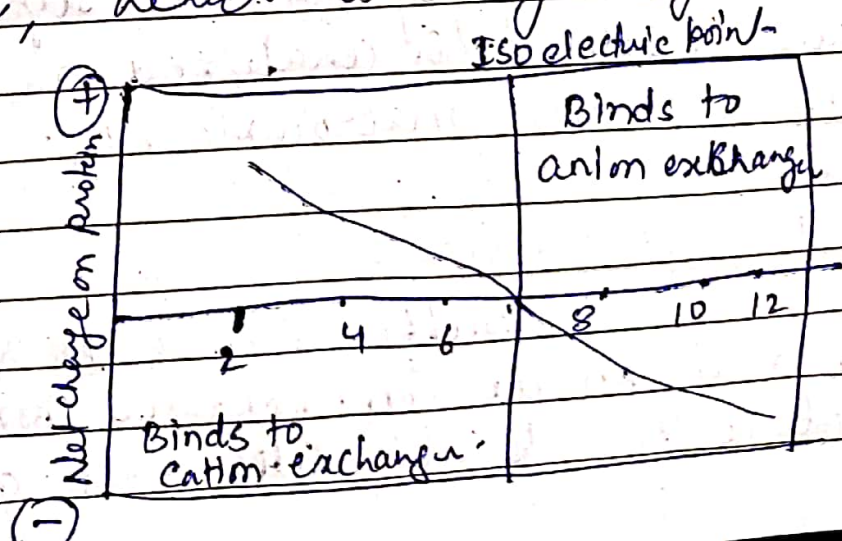 ISO electric point
Binds to
anion exchanger
+
Net charge on protein
-
2 4 6 8 10 12
Binds to
cation exchanger